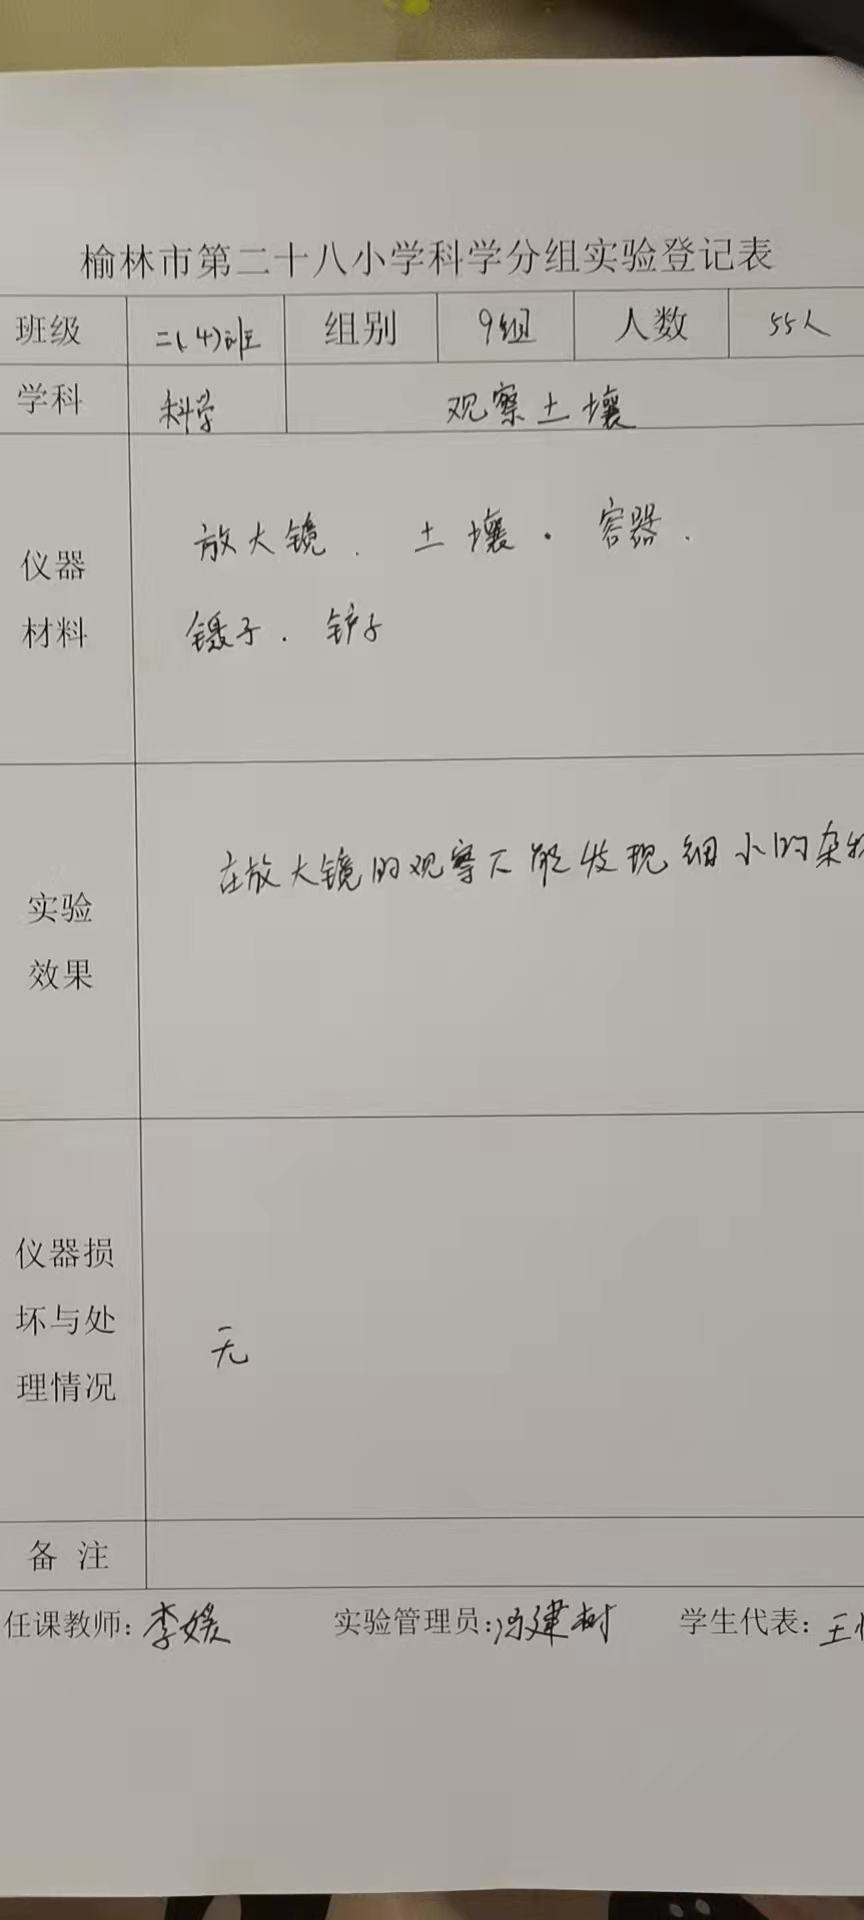 榆林市第二十八小学科学分组实验登记表
班级 二(4)班 组别 9组 人数 55人
学科 科学 观察土壤
仪器
材料
放大镜. 土壤. 容器.
镊子. 铲子
实验
效果
在放大镜的观察下能发现细小的杂物
仪器损
坏与处
理情况
无
备注
任课教师:李媛 实验管理员:冯建树 学生代表:王